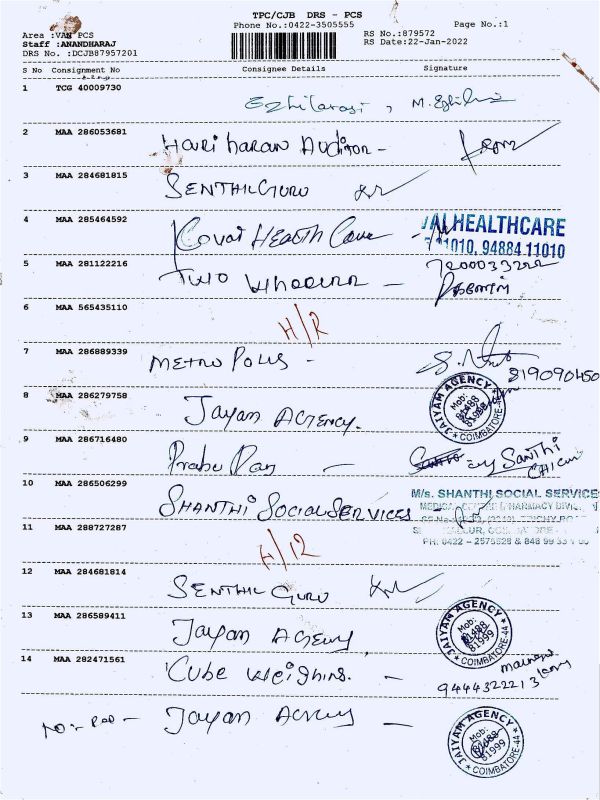 TPC/CJB DRS - PCS
Phone No.:0422-3505555
Page No.:1
Area :VAN PCS
Staff :ANANDHARAJ
DRS No. :DCJB87957201
RS No.:879572
RS Date:22-Jan-2022
S No Consignment No Consignee Details Signature
1 TCG 40009730
Ezhilarasi, M.
2 MAA 286053681
Hari haran Auditor -
3 MAA 284681815
SENTHIL GURU
4 MAA 285464592
Kovai Health Care
HEALTHCARE
11010, 94884 11010
5 MAA 281122216
Two wheeler -
7200033222
6 MAA 565435110
H/R
7 MAA 286889339
METROPOLIS -
819090450
8 MAA 286279758
Jayam AGENCY.
JAIYAM AGENCY
Mob:
81488
81999
COIMBATORE-44
9 MAA 286716480
Prabu Das -
Santhi
10 MAA 286506299
SHANTHI SOCIAL SERVICES -
M/s. SHANTHI SOCIAL SERVICES
PHARMACY
PH: 0422 - 2575628 & 848 99 33
11 MAA 288727287
H/12
12 MAA 284681814
SENTHIL GURU
13 MAA 286589411
Jayam Agency
JAIYAM AGENCY
Mob:
81488
81999
COIMBATORE-44
14 MAA 282471561
Cube weighing. -
9444322213
Jayam Agency -
JAIYAM AGENCY
Mob:
81999
COIMBATORE-44